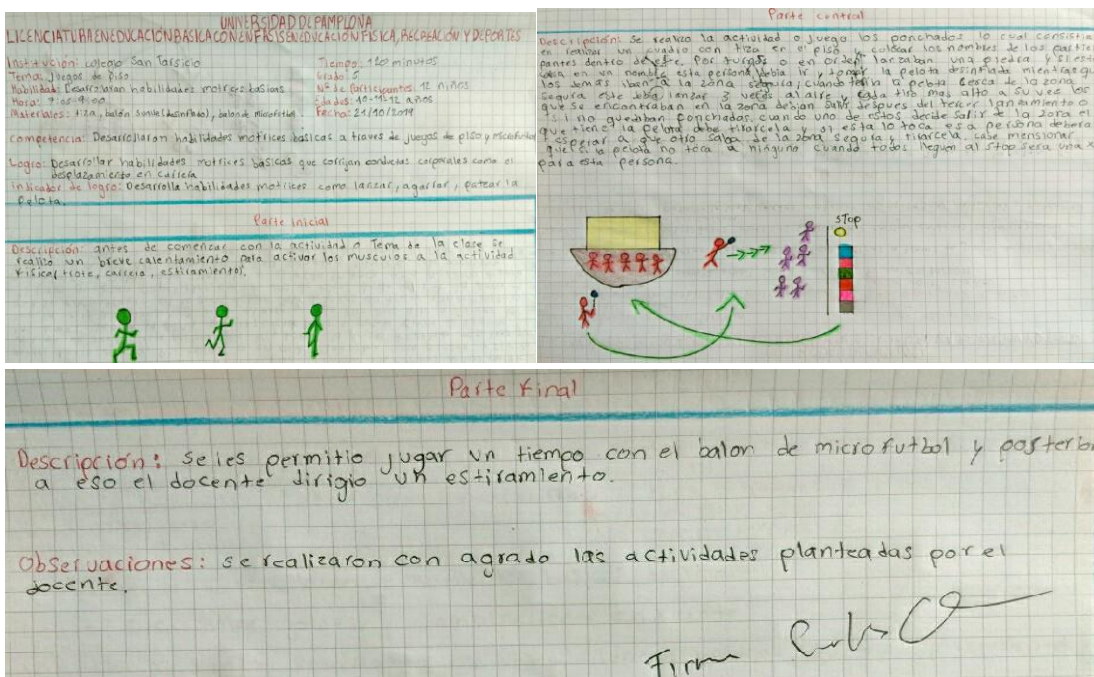 UNIVERSIDAD DE PAMPLONA
LICENCIATURA EN EDUCACIÓN BASICA CON ENFASIS EN EDUCACIÓN FISICA, RECREACIÓN Y DEPORTES
Institución: colegio San Tarsicio
Tema: Juegos de piso
Habilidad: Desarrollaran habilidades motrices basicas
Hora: 7:00-9:00
Materiales: tiza, balón (desinflado), balon de microfutbol.
Tiempo: 120 minutos
Grado: 5
Nº de Participantes: 12 niños
Edades: 10-11-12 años
Fecha: 21/10/2019
competencia: Desarrollaron habilidades motrices básicas a traves de juegos de piso y microfutbol
Logro: Desarrollar habilidades motrices basicas que corrijan conductas corporales como el
desplazamiento en carrera
indicador de logro: Desarrolla habilidades motrices como lanzar, agarrar, patear la
pelota.
Parte inicial
Descripción: antes de comenzar con la actividad o Tema de la clase se
realizo un breve calentamiento para activar los musculos a la actividad
Fisica (trote, carrera, estiramientos.
Parte central
Descripción: Se realizo la actividad o juego los ponchados lo cual consistia
en realizar un cuadro con tiza en el piso y colocar los nombres de los partici
pantes dentro de este. Por turnos o en orden lanzaban una piedra y si esta
caia en un nombre esta persona debia ir y tomar la pelota desinflada mientras que
los demas iban a la zona segura, cuando tenia la pelota cerca de la zona
segura este debia lanzar 3 veces al aire y cada tiro mas alto a su vez los
que se encontraban en la zona debian salir despues del tercer lanzamiento o
si no quedaban ponchados, cuando uno de estos decide salir de la zona el
que tiene la pelota debe tirarcela y si esta lo toca esa persona debera
esperar a que otro salga de la zona segura y tirarcela, cabe mensionar
que si la pelota no toca a ninguno cuando todos lleguen al stop sera una x
para esta persona.
STOP
Parte Final
Descripción: se les permitio jugar un tiempo con el balon de microfutbol y posterior
a eso el docente dirigio un estiramiento.
Observaciones: se realizaron con agrado las actividades planteadas por el
docente.
Firma